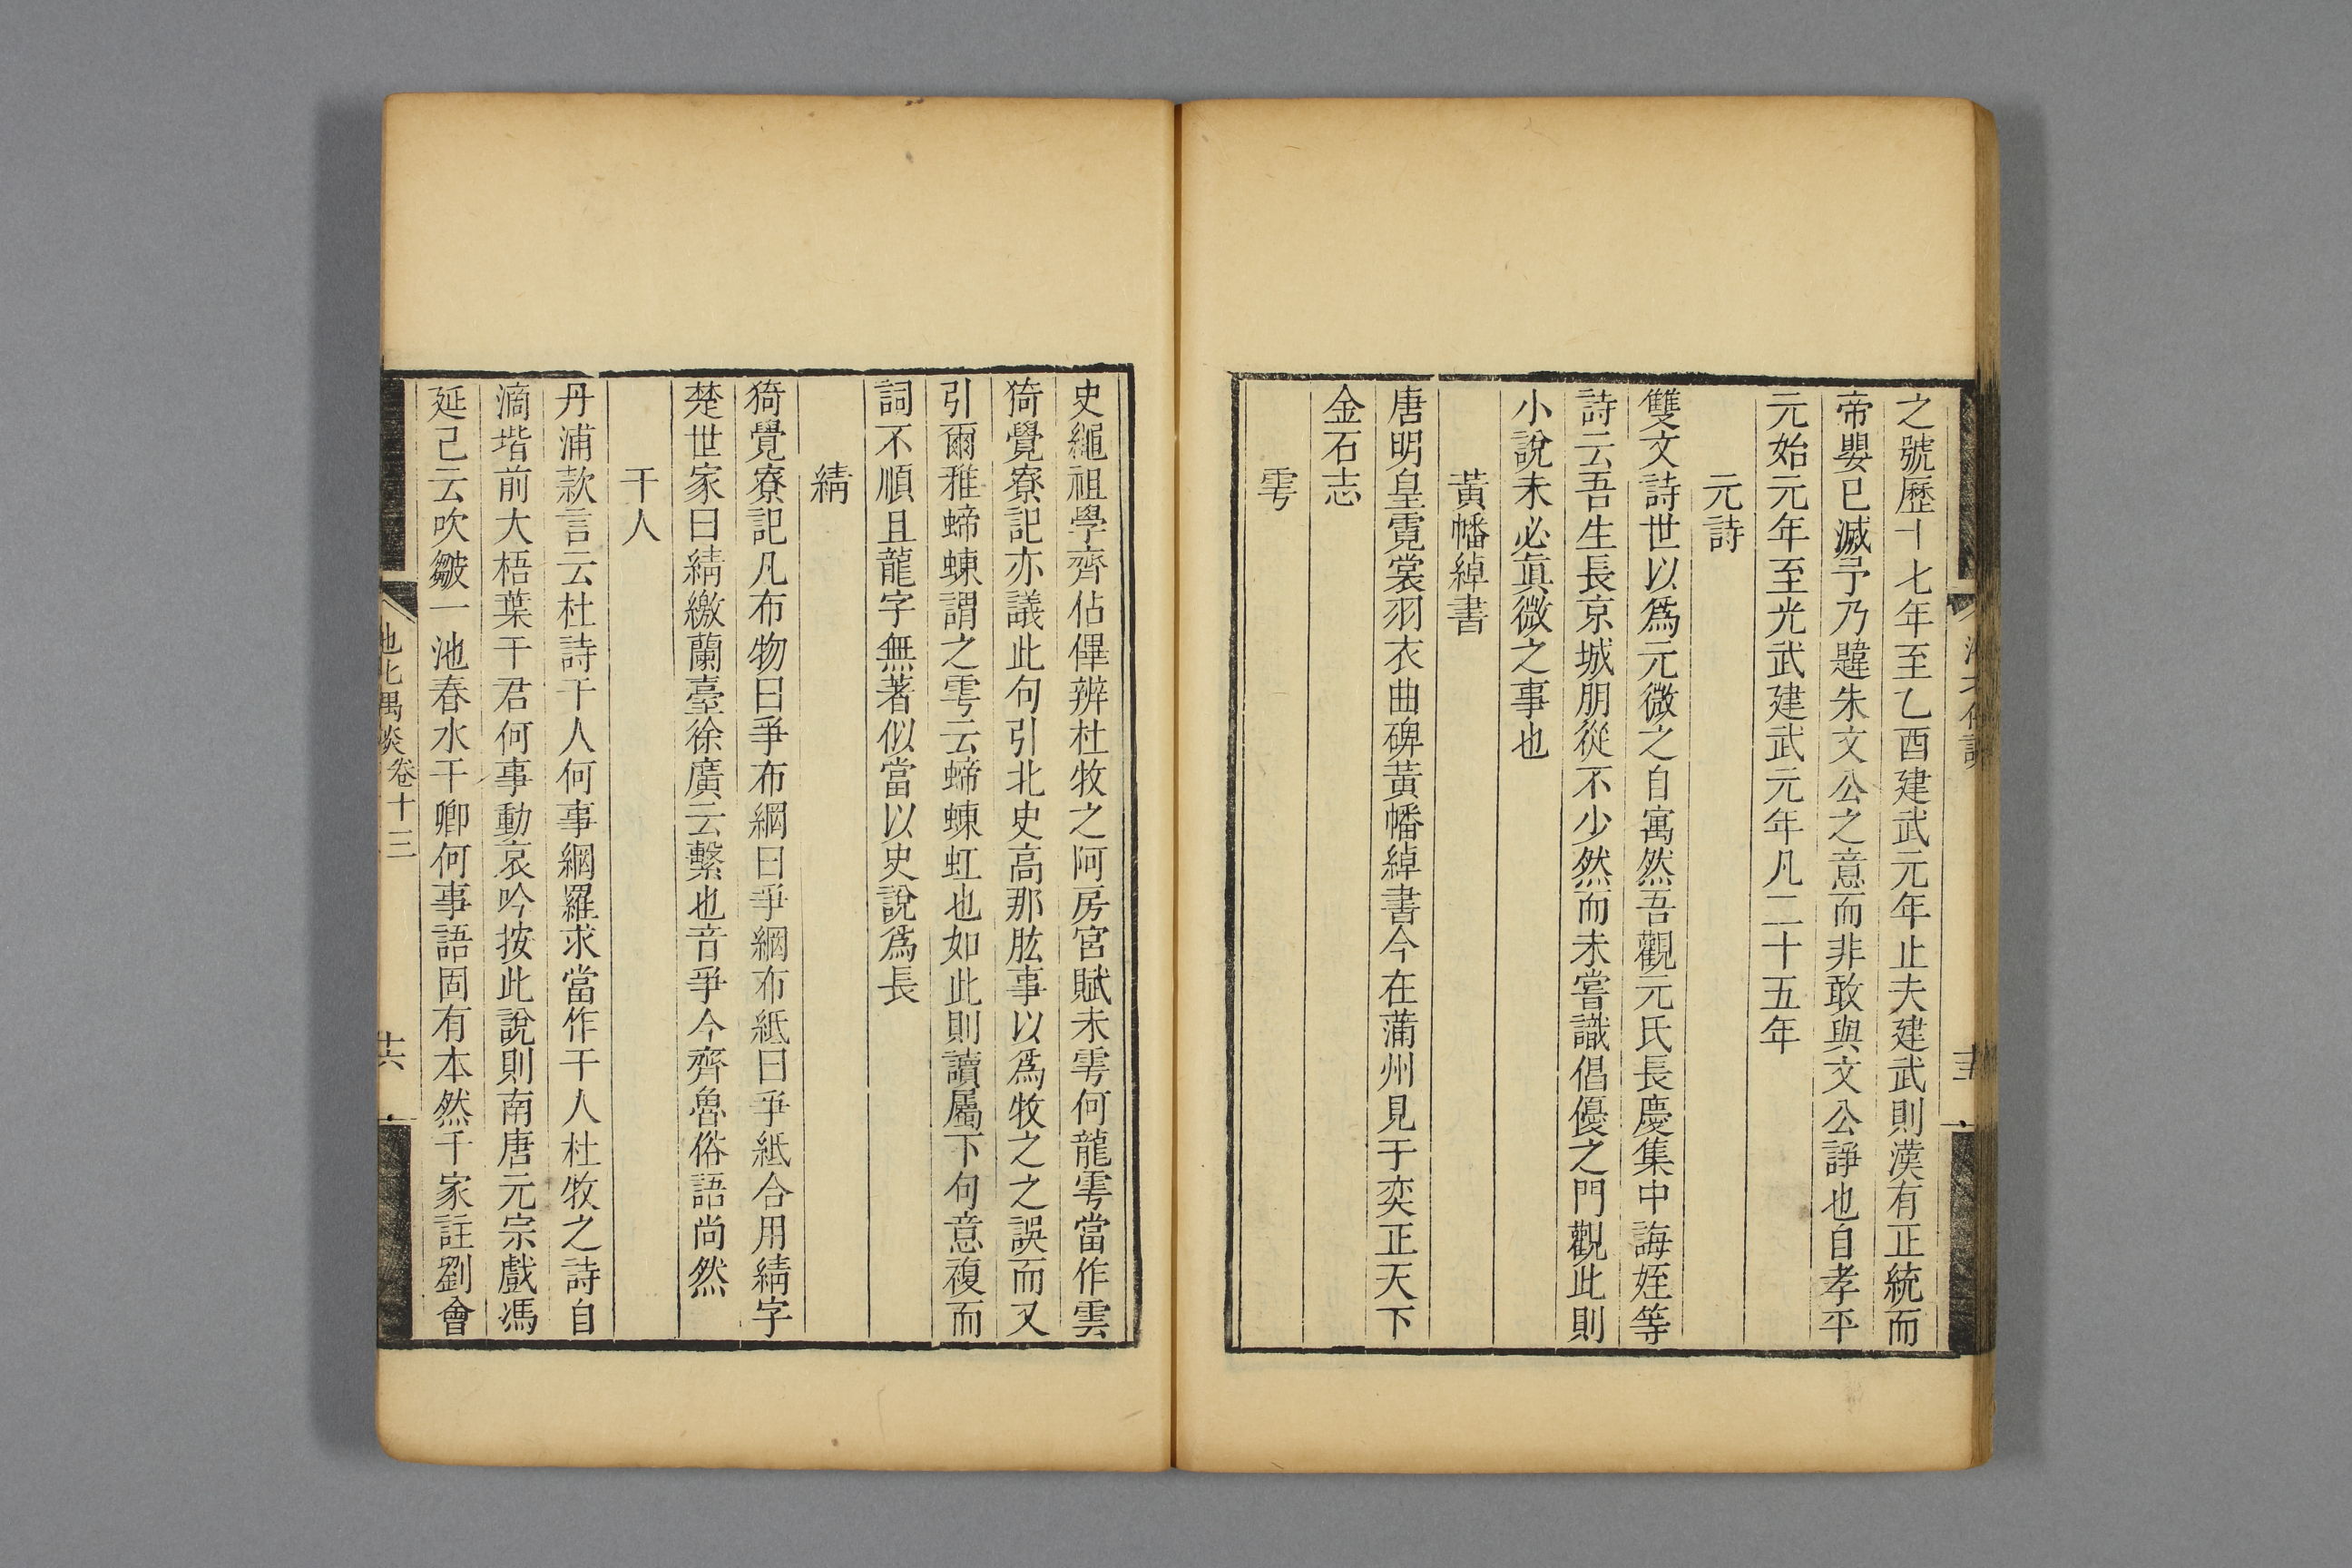 之號歷十七年至乙酉建武元年止夫建武則漢有正統而
帝嬰已滅予乃韙朱文公之意而非敢與文公諍也自孝平
元始元年至光武建武元年凡二十五年
元詩
雙文詩世以爲元微之自寓然吾觀元氏長慶集中誨姪等
詩云吾生長京城朋從不少然而未嘗識倡優之門觀此則
小說未必眞微之事也
黃幡綽書
唐明皇霓裳羽衣曲碑黃幡綽書今在蒲州見于奕正天下
金石志
雩
史繩祖學齊佔俾辨杜牧之阿房宮賦未雩何龍雩當作雲
猗覺寮記亦議此句引北史高那肱事以爲牧之之誤而又
引爾雅螮蝀謂之雩云螮蝀虹也如此則讀屬下句意複而
詞不順且龍字無著似當以史說爲長
綪
猗覺寮記凡布物曰爭布綱曰爭綱布紙曰爭紙合用綪字
楚世家曰綪繳蘭臺徐廣云繫也音爭今齊魯俗語尚然
干人
丹浦款言云杜詩千人何事網羅求當作干人杜牧之詩自
滴堦前大梧葉干君何事動哀吟按此說則南唐元宗戲馮
延己云吹皺一池春水干卿何事語固有本然千家註劉會
池北偶談卷十三
十六